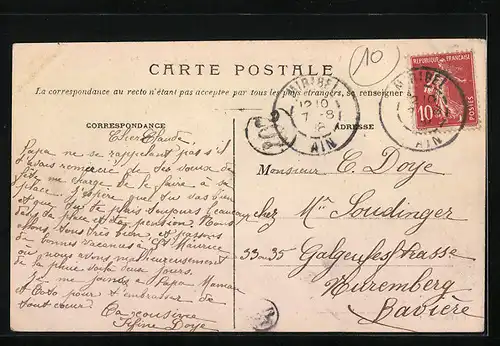 10
CARTE POSTALE
La correspondance au recto n'étant pas acceptée par tous les pays étrangers, se renseigner
CORRESPONDANCE
ADRESSE
MIRIBEL
12 10
7 -8
AIN
MIRIBEL
AIN
RÉPUBLIQUE FRANÇAISE
10
POSTES
Cher Claude,
Papa ne se rappelant pas s'il
t'avais remercié de tes vœux de
fête me charge de le faire à sa
place. J'espère que tu vas bien
et que tu te plais toujours beaucoup
dans ta place et ta pension. Nous
allons tous très bien et passons
de bonnes vacances à St Maurice
où nous avons malheureusement
de la pluie tous les jours.
Je me joins à Papa Maman
et Toto pour t'embrasser de
tout cœur.
Ta cousine
Fifine Doye
Monsieur C. Doye
chez Mr Soudinger
33-35 Galgenfestrasse
Nuremberg
Bavière